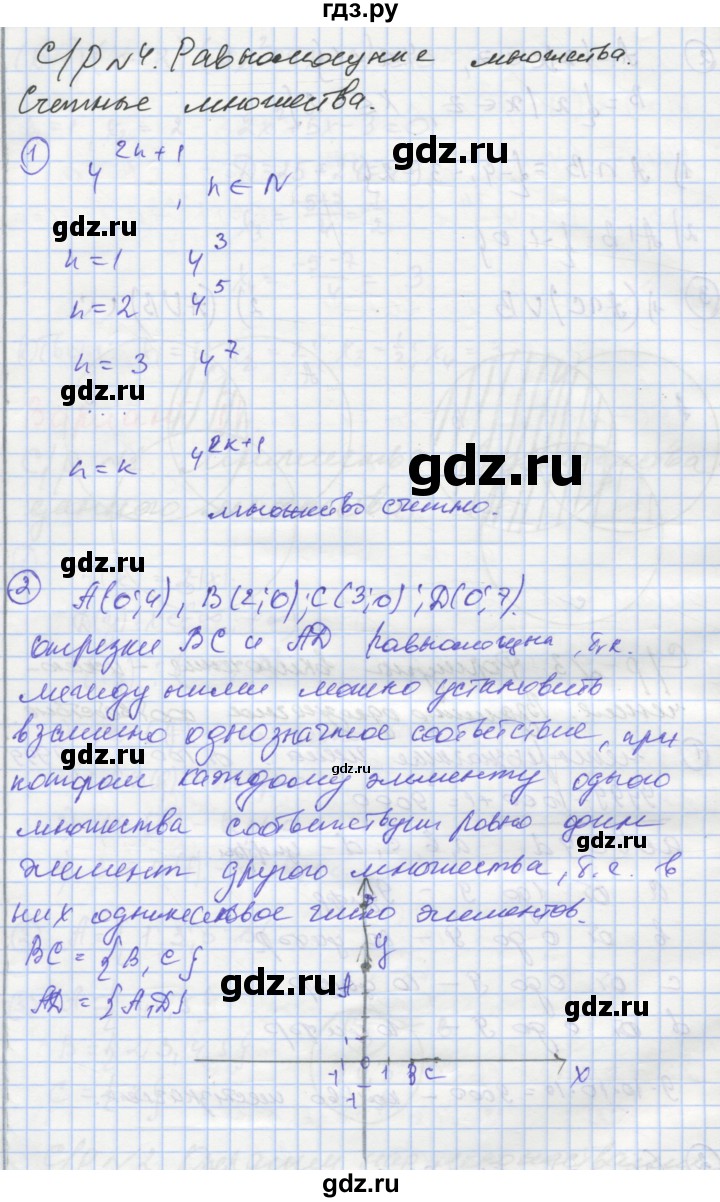 гдз.ру
С/р №4. Равномощные множества.
Счетные множества.
gdz.ru
1 4^{2n+1}, n ∈ N
gdz.ru
n = 1 4^3
n = 2 4^5
gdz.ru
n = 3 4^7
gdz.ru
n = k 4^{2k+1}
gdz.ru
множество счетно.
gdz.ru
2 A(0;4), B(2;0); C(3;0); D(0;7).
отрезки BC и AD равномощны, т.к.
gdz.ru
между ними можно установить
взаимно однозначное соответствие, при
gdz.ru
котором каждому элементу одного
gdz.ru
множества соответствует ровно один
gdz.ru
элемент другого множества, т.е. в
них одинаковое число элементов.
BC = {B, C}
gdz.ru
AD = {A, D}
gdz.ru
y
A
0
-1 1 B C x
-1
gdz.ru